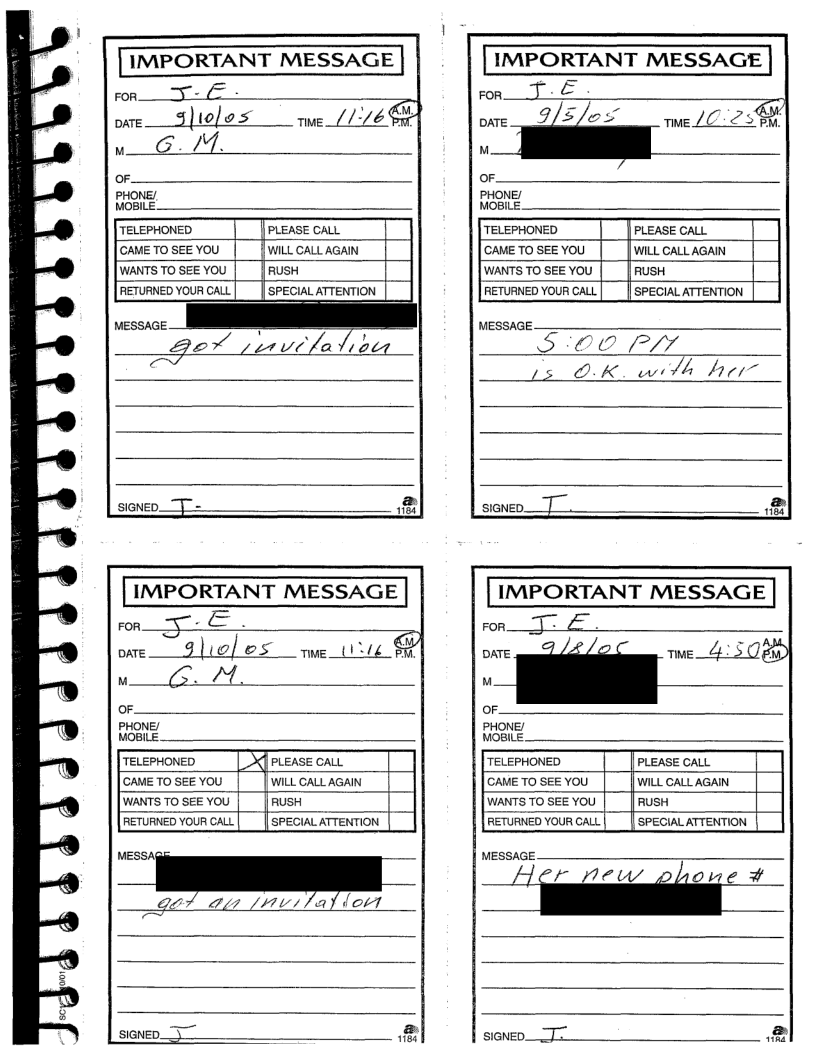 IMPORTANT MESSAGE
FOR J.E.
DATE 9/10/05 TIME 11:16 A.M. P.M.
M G.M.
OF
PHONE/
MOBILE
TELEPHONED PLEASE CALL
CAME TO SEE YOU WILL CALL AGAIN
WANTS TO SEE YOU RUSH
RETURNED YOUR CALL SPECIAL ATTENTION
MESSAGE
got invitation
SIGNED J-
1184
IMPORTANT MESSAGE
FOR J.E.
DATE 9/5/05 TIME 10:25 A.M. P.M.
M
OF
PHONE/
MOBILE
TELEPHONED PLEASE CALL
CAME TO SEE YOU WILL CALL AGAIN
WANTS TO SEE YOU RUSH
RETURNED YOUR CALL SPECIAL ATTENTION
MESSAGE
5:00 PM
is O.K. with her
SIGNED J.
1184
IMPORTANT MESSAGE
FOR J.E.
DATE 9/10/05 TIME 11:16 A.M. P.M.
M G.M.
OF
PHONE/
MOBILE
TELEPHONED X PLEASE CALL
CAME TO SEE YOU WILL CALL AGAIN
WANTS TO SEE YOU RUSH
RETURNED YOUR CALL SPECIAL ATTENTION
MESSAGE
got an invitation
SIGNED J
1184
IMPORTANT MESSAGE
FOR J.E.
DATE 9/8/05 TIME 4:50 A.M. P.M.
M
OF
PHONE/
MOBILE
TELEPHONED PLEASE CALL
CAME TO SEE YOU WILL CALL AGAIN
WANTS TO SEE YOU RUSH
RETURNED YOUR CALL SPECIAL ATTENTION
MESSAGE
Her new phone #
SIGNED J.
1184